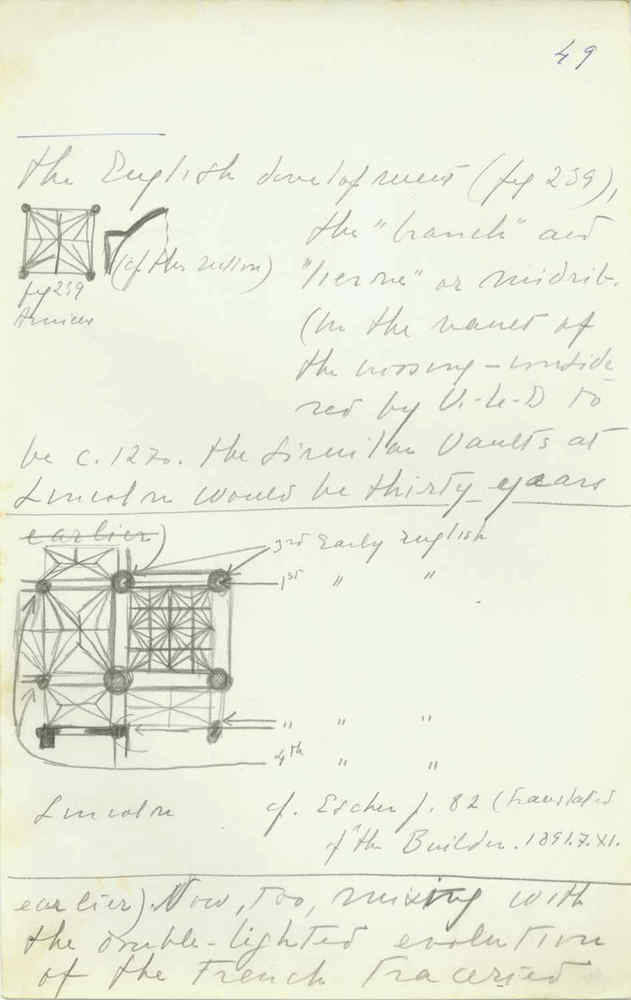 49
the English development (fig 239),
the "branch" and
(cf this section) "lierne" or midrib.
fig 239
Amiens
(In the vault of
the crossing – conside
red by V.-le-D to
be c. 1270. the similar vaults at
Lincoln would be thirty years
earlier)
3rd Early English
1st " "
" " "
4th " "
Lincoln cf. Escher p. 82 (translated
of the Builder. 1891.7.XI.
earlier). Now, too, mixing with
the double-lighted evolution
of the French traceried